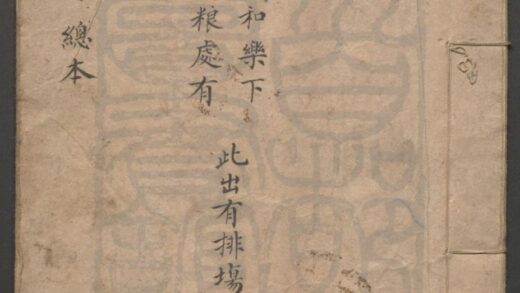 和樂下
粮處有
此出有排場
總本